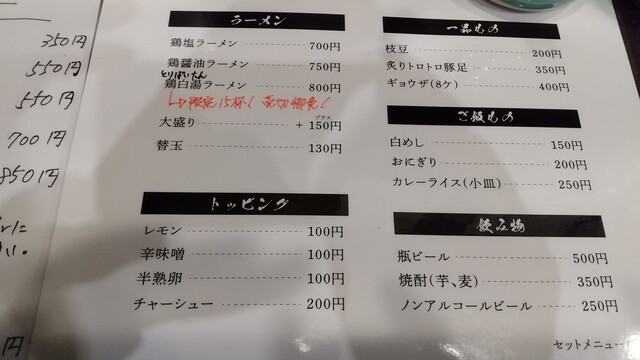 350円
550円
550円
700円
850円
い。
円
ラーメン
鶏塩ラーメン 700円
鶏醤油ラーメン 750円
とりぱいたん
鶏白湯ラーメン 800円
限定15杯! 売切御免!
プラス
大盛り +150円
替玉 130円
トッピング
レモン 100円
辛味噌 100円
半熟卵 100円
チャーシュー 200円
一品もの
枝豆 200円
炙りトロトロ豚足 350円
ギョウザ(8ケ) 400円
ご飯もの
白めし 150円
おにぎり 200円
カレーライス(小皿) 250円
飲み物
瓶ビール 500円
焼酎(芋、麦) 350円
ノンアルコールビール 250円
セットメニュー